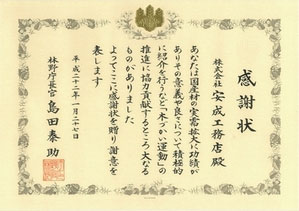 感謝状
株式会社安成工務店殿
あなたは国産材の実需拡大に功績が
ありその意義や良さについて積極的
に紹介を行うなど「木づかい運動」の
推進に協力貢献するところ大なる
ものがありました
よってここに感謝状を贈り謝意を
表します
平成二十二年一月二十七日
林野庁長官 島田泰助